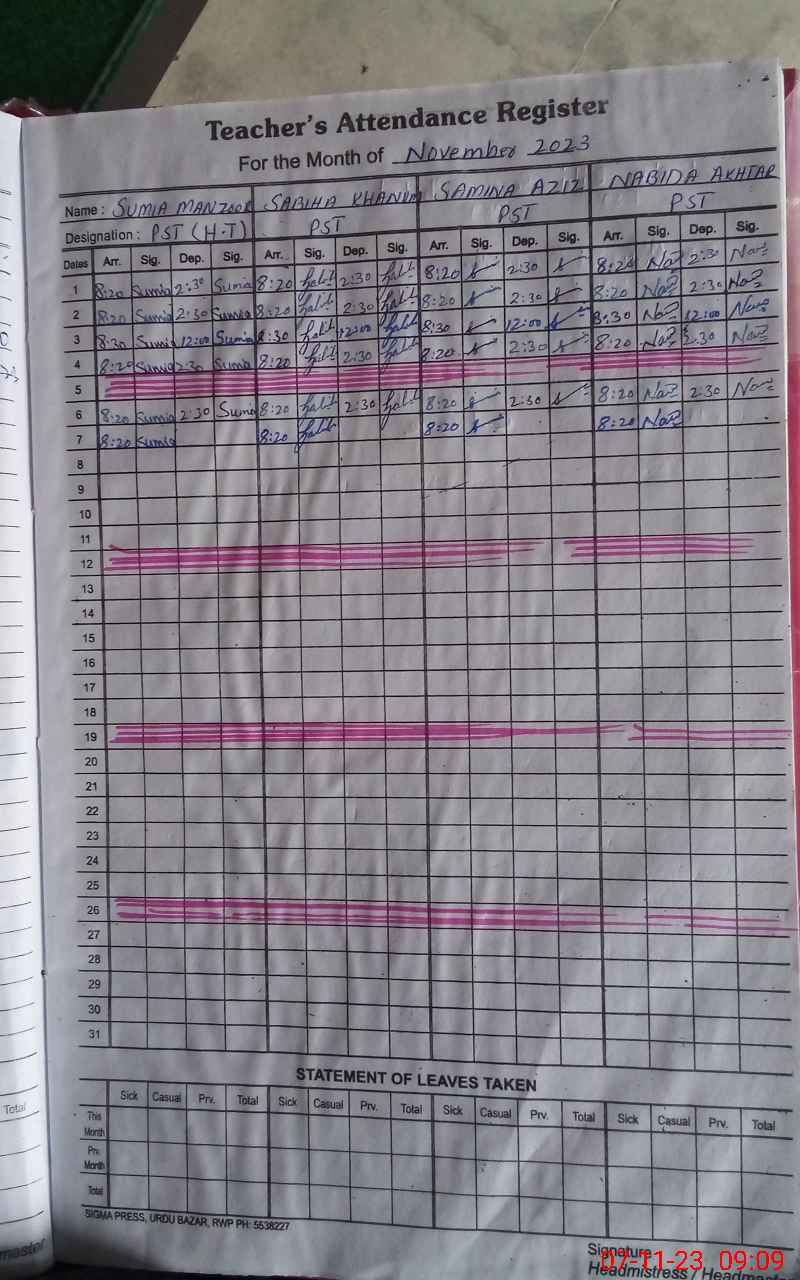 Teacher's Attendance Register
For the Month of November 2023
Name : SUMIA MANZOOR SABIHA KHANUM SAMINA AZIZ NABIDA AKHTAR
Designation : PST (H.T) PST PST PST
Dates Arr. Sig. Dep. Sig. Arr. Sig. Dep. Sig. Arr. Sig. Dep. Sig. Arr. Sig. Dep. Sig.
1 8:20 Sumia 2:30 Sumia 8:20 2:30 8:20 2:30 8:20 2:30
2 8:20 Sumia 2:30 Sumia 8:20 2:30 8:20 2:30 8:20 2:30
3 8:30 Sumia 12:00 Sumia 8:30 12:00 8:30 12:00 8:30 12:00
4 8:20 Sumia 2:30 Sumia 8:20 2:30 8:20 2:30 8:20 2:30
5
6 8:20 Sumia 2:30 Sumia 8:20 2:30 8:20 2:30 8:20 2:30
7 8:20 Sumia 8:20 8:20 8:20
8
9
10
11
12
13
14
15
16
17
18
19
20
21
22
23
24
25
26
27
28
29
30
31
STATEMENT OF LEAVES TAKEN
Sick Casual Prv. Total Sick Casual Prv. Total Sick Casual Prv. Total Sick Casual Prv. Total
This Month
Prv. Month
Total
SIGMA PRESS, URDU BAZAR, RWP PH: 5538227
Signature
Headmistress /
07-11-23 09:09
Total